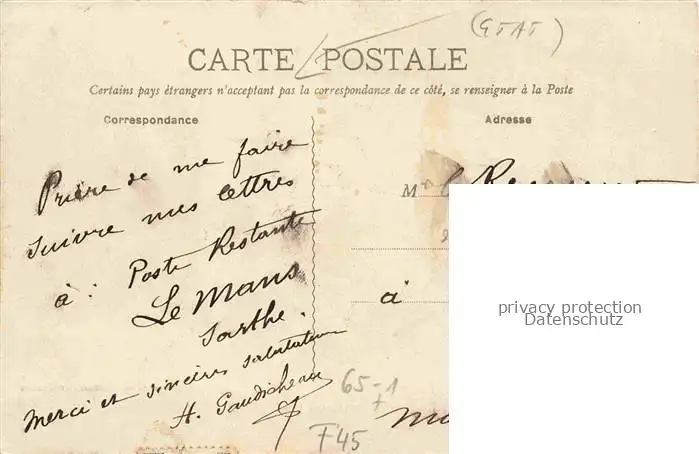 (GTAT)
CARTE POSTALE
Certains pays étrangers n'acceptant pas la correspondance de ce côté, se renseigner à la Poste
Correspondance
Prière de me faire
suivre mes lettres
à: Poste Restante
Le Mans
Sarthe.
Merci et sincères salutations
H. Gaudicheau
Adresse
M
à
65-1
F45
privacy protection
Datenschutz